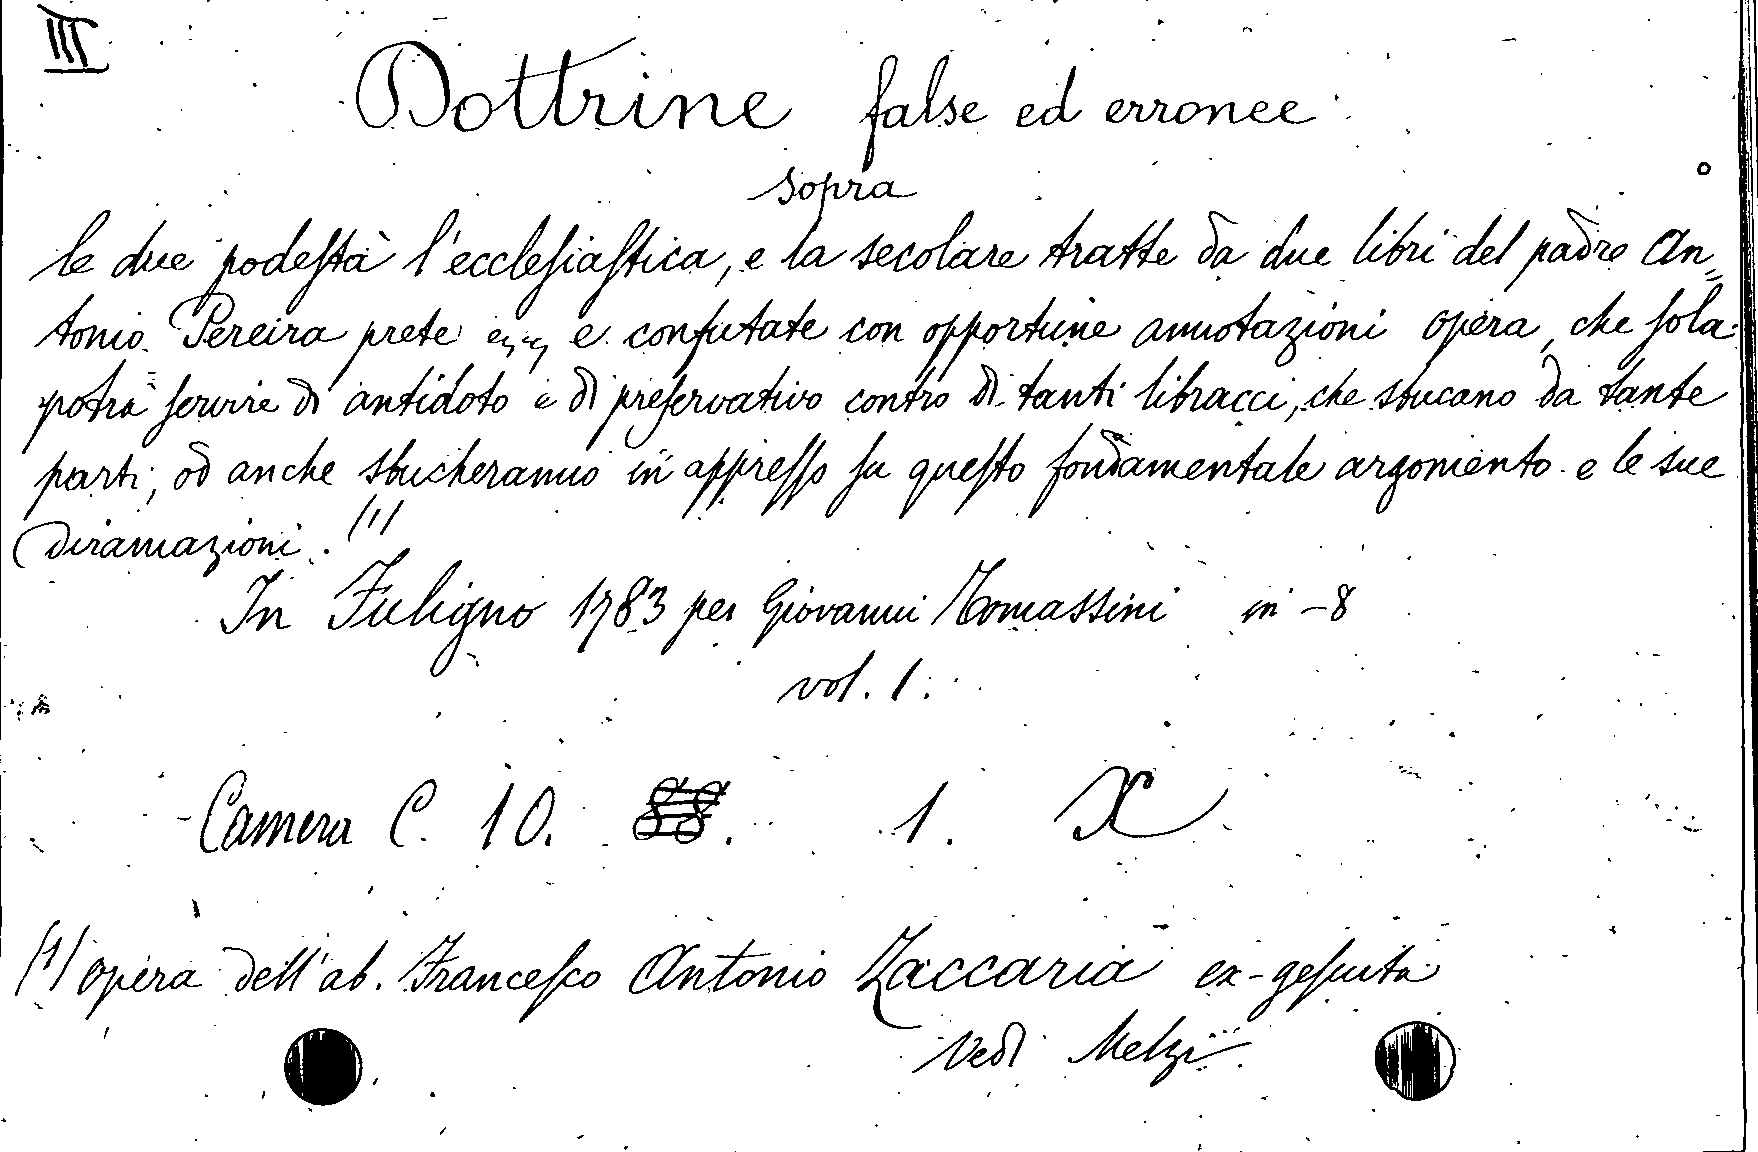 III
Dottrine false ed erronee
sopra
le due podestà l'ecclesiastica, e la secolare tratte da due libri del padre An„
tonio Pereira prete e confutate con opportune annotazioni opera, che sola
potrà servire di antidoto e di preservativo contro di tanti libracci, che sbucano da tante
parti, od anche sbucheranno in appresso su questo fondamentale argomento e le sue
diramazioni. (1)
In Fuligno 1783 per Giovanni Tomassini in -8
vol. 1.
Camera C. 10. 88. 1. X
(1) opera dell'ab. Francesco Antonio Zaccaria ex-gesuita
Vedi Melzi.